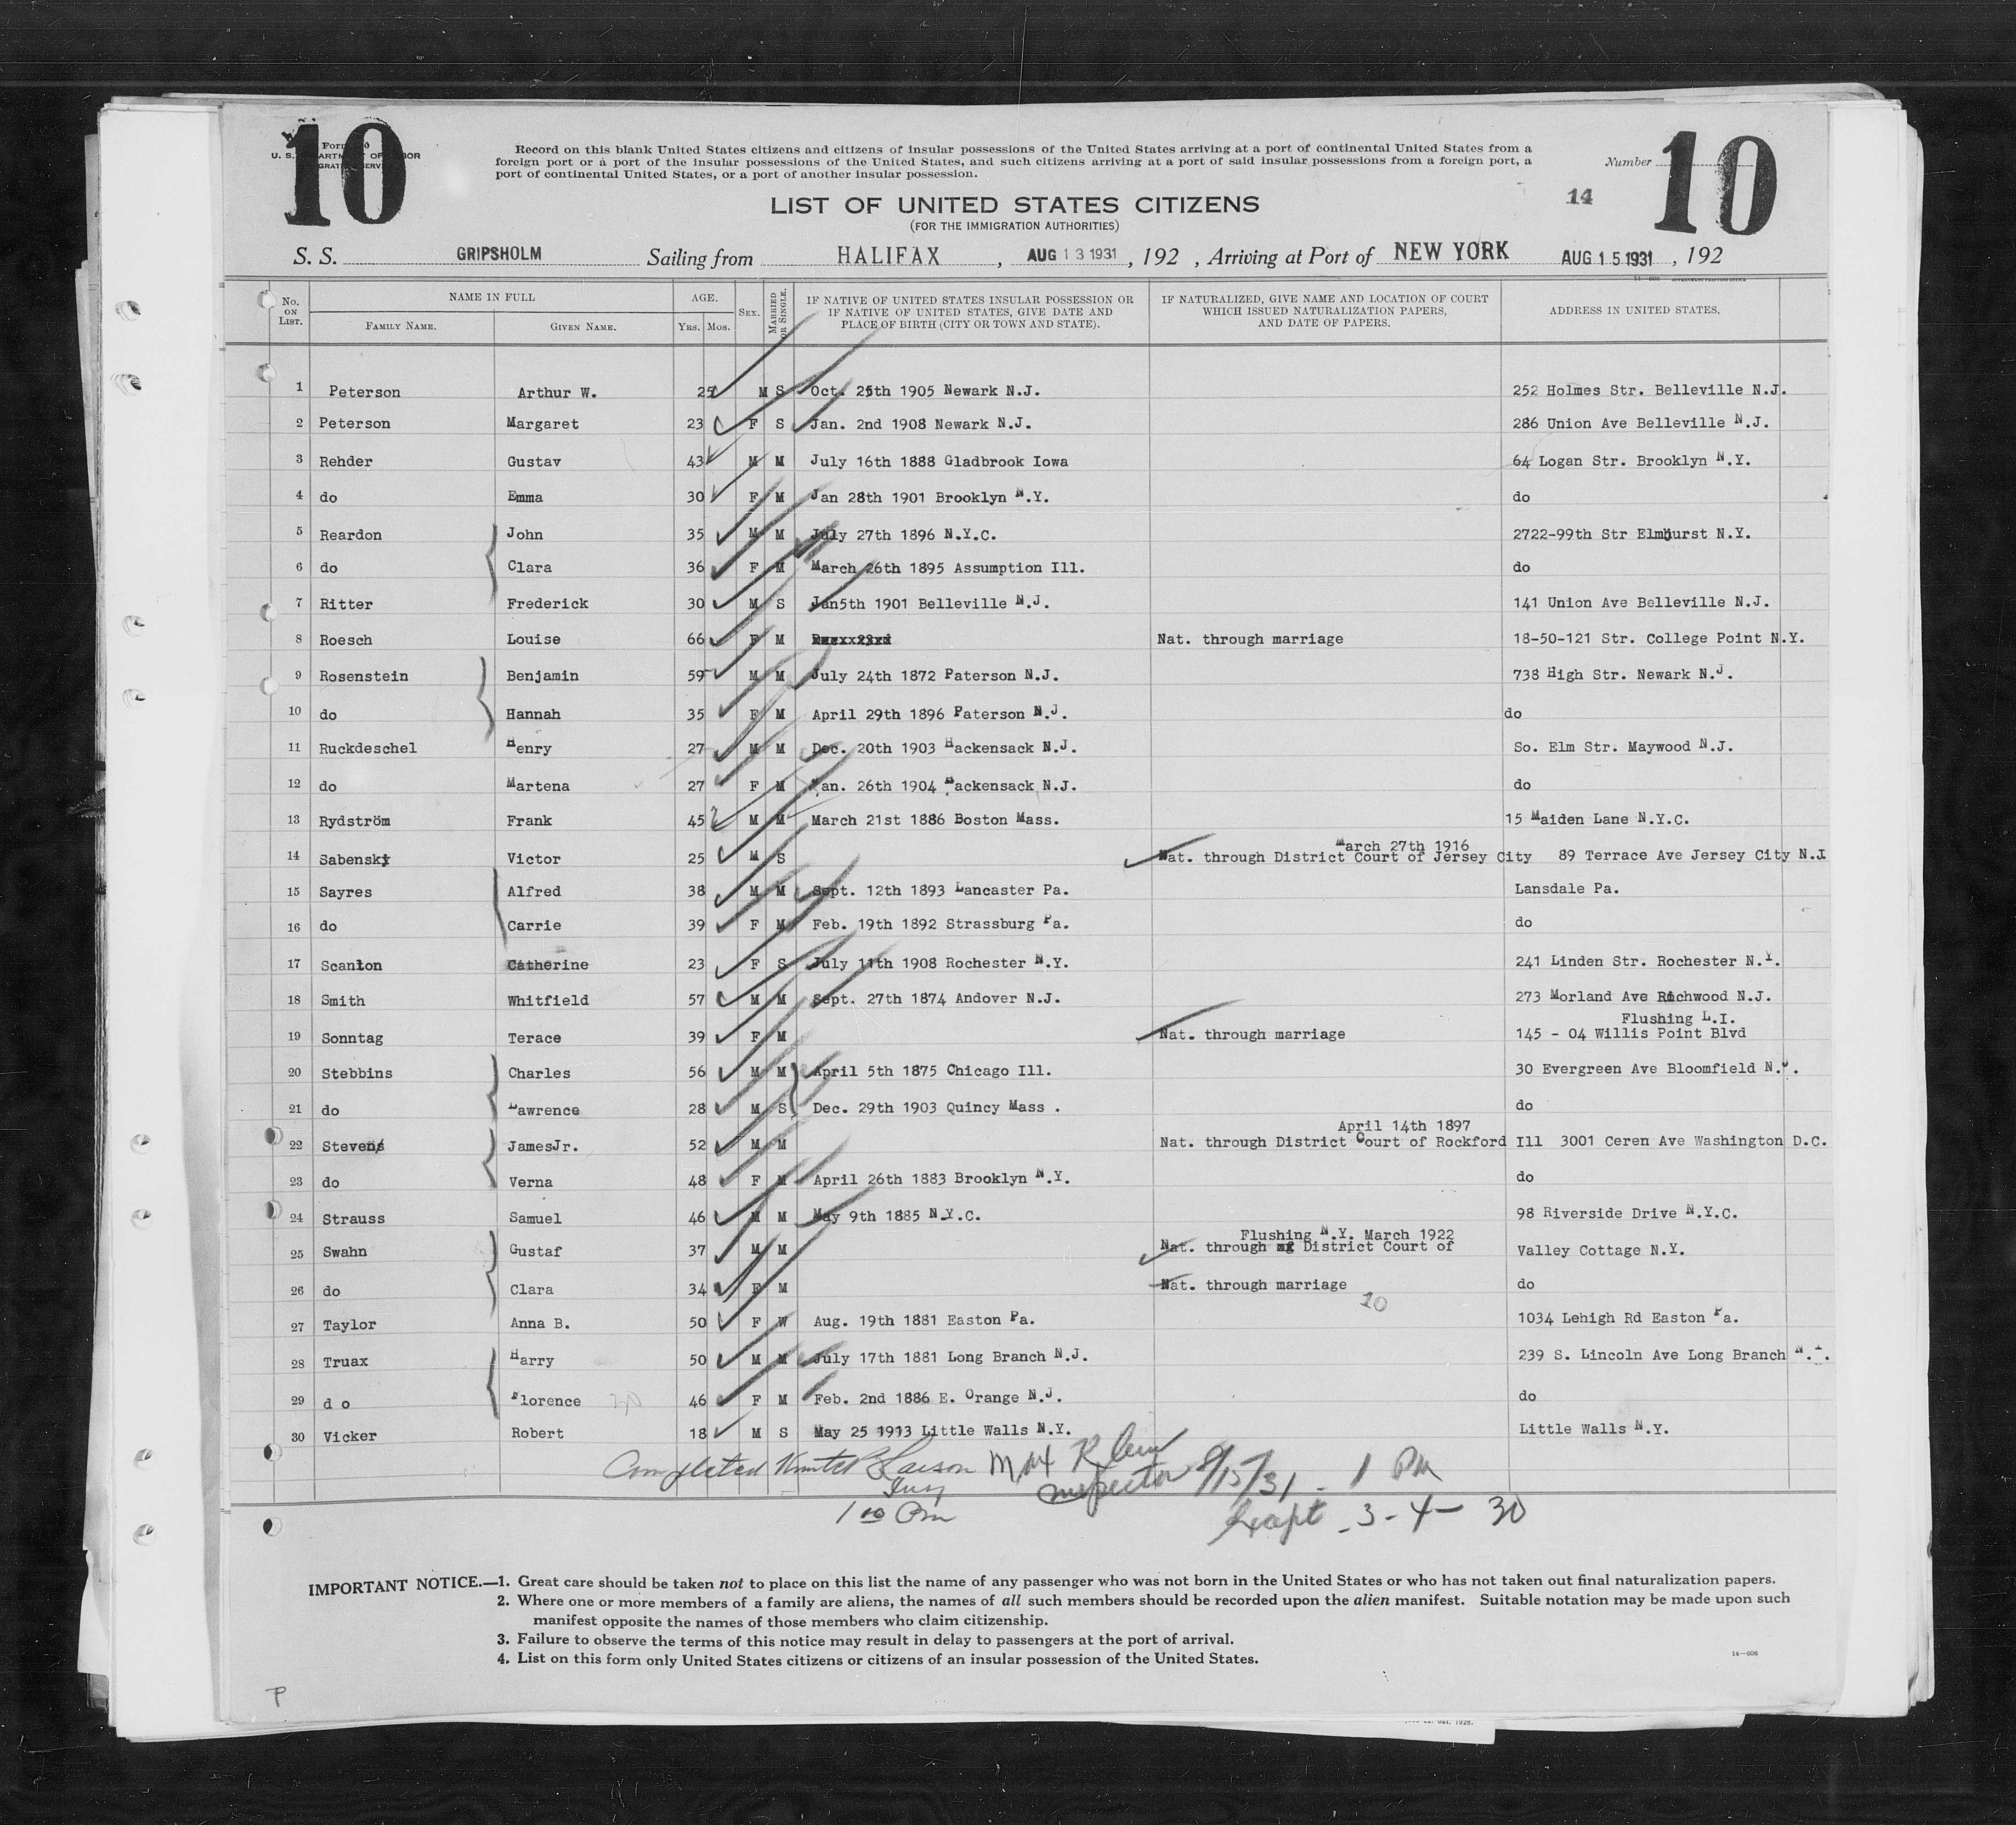 10
Form 
U. S. DEPARTMENT OF LABOR
IMMIGRATION SERVICE
Record on this blank United States citizens and citizens of insular possessions of the United States arriving at a port of continental United States from a
foreign port or a port of the insular possessions of the United States, and such citizens arriving at a port of said insular possessions from a foreign port, a
port of continental United States, or a port of another insular possession.
Number 10
14
LIST OF UNITED STATES CITIZENS
(FOR THE IMMIGRATION AUTHORITIES)
S. S. GRIPSHOLM Sailing from HALIFAX, AUG 13 1931, 192 , Arriving at Port of NEW YORK AUG 15 1931, 192
14—608 GOVERNMENT PRINTING OFFICE
No. ON LIST. NAME IN FULL FAMILY NAME. GIVEN NAME. AGE. YRS. MOS. SEX. MARRIED OR SINGLE. IF NATIVE OF UNITED STATES INSULAR POSSESSION OR IF NATIVE OF UNITED STATES, GIVE DATE AND PLACE OF BIRTH (CITY OR TOWN AND STATE). IF NATURALIZED, GIVE NAME AND LOCATION OF COURT WHICH ISSUED NATURALIZATION PAPERS, AND DATE OF PAPERS. ADDRESS IN UNITED STATES.
1 Peterson Arthur W. 25 M S Oct. 25th 1905 Newark N.J. 252 Holmes Str. Belleville N.J.
2 Peterson Margaret 23 F S Jan. 2nd 1908 Newark N.J. 286 Union Ave Belleville N.J.
3 Rehder Gustav 43 M M July 16th 1888 Gladbrook Iowa 64 Logan Str. Brooklyn N.Y.
4 do Emma 30 F M Jan 28th 1901 Brooklyn N.Y. do
5 Reardon John 35 M M July 27th 1896 N.Y.C. 2722-99th Str Elmhurst N.Y.
6 do Clara 36 F M March 26th 1895 Assumption Ill. do
7 Ritter Frederick 30 M S Jan5th 1901 Belleville N.J. 141 Union Ave Belleville N.J.
8 Roesch Louise 66 F M Nat. through marriage 18-50-121 Str. College Point N.Y.
9 Rosenstein Benjamin 59 M M July 24th 1872 Paterson N.J. 738 High Str. Newark N.J.
10 do Hannah 35 F M April 29th 1896 Paterson N.J. do
11 Ruckdeschel Henry 27 M M Dec. 20th 1903 Hackensack N.J. So. Elm Str. Maywood N.J.
12 do Martena 27 F M Jan. 26th 1904 Hackensack N.J. do
13 Rydström Frank 45 M M March 21st 1886 Boston Mass. 15 Maiden Lane N.Y.C.
March 27th 1916
14 Sabensky Victor 25 M S Nat. through District Court of Jersey City 89 Terrace Ave Jersey City N.J
15 Sayres Alfred 38 M M Sept. 12th 1893 Lancaster Pa. Lansdale Pa.
16 do Carrie 39 F M Feb. 19th 1892 Strassburg Pa. do
17 Scanlon Catherine 23 F S July 11th 1908 Rochester N.Y. 241 Linden Str. Rochester N.Y.
18 Smith Whitfield 57 M M Sept. 27th 1874 Andover N.J. 273 Morland Ave Richwood N.J.
Flushing L.I.
19 Sonntag Terace 39 F M Nat. through marriage 145 - 04 Willis Point Blvd
20 Stebbins Charles 56 M M April 5th 1875 Chicago Ill. 30 Evergreen Ave Bloomfield N.J.
21 do Lawrence 28 M S Dec. 29th 1903 Quincy Mass . do
April 14th 1897
22 Stevens James Jr. 52 M M Nat. through District Court of Rockford Ill 3001 Ceren Ave Washington D.C.
23 do Verna 48 F M April 26th 1883 Brooklyn N.Y. do
24 Strauss Samuel 46 M M May 9th 1885 N.Y.C. 98 Riverside Drive N.Y.C.
Flushing N.Y. March 1922
25 Swahn Gustaf 37 M M Nat. through District Court of Valley Cottage N.Y.
26 do Clara 34 F M Nat. through marriage do
10
27 Taylor Anna B. 50 F W Aug. 19th 1881 Easton Pa. 1034 Lehigh Rd Easton Pa.
28 Truax Harry 50 M M July 17th 1881 Long Branch N.J. 239 S. Lincoln Ave Long Branch
29 d o Florence 46 F M Feb. 2nd 1886 E. Orange N.J. do
30 Vicker Robert 18 M S May 25 1913 Little Walls N.Y. Little Walls N.Y.
Completed Larson Max Klein
Insp Inspector 8/15/31 - 1 PM
1 00 Pm Except - 3 - 4 - 30
IMPORTANT NOTICE.—1. Great care should be taken not to place on this list the name of any passenger who was not born in the United States or who has not taken out final naturalization papers.
2. Where one or more members of a family are aliens, the names of all such members should be recorded upon the alien manifest. Suitable notation may be made upon such
manifest opposite the names of those members who claim citizenship.
3. Failure to observe the terms of this notice may result in delay to passengers at the port of arrival.
4. List on this form only United States citizens or citizens of an insular possession of the United States.
14—608
P